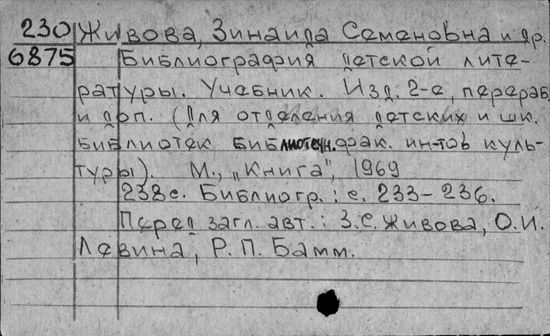 230 Живова, Зинаида Семеновна и др.
6875 Библиография детской лите-
ратуры. Учебник. Изд. 2-е, перераб.
и доп. (Для отделения детских и шк.
библиотек библиотечн. фак. ин-тов куль-
туры). М., "Книга", 1969
238 с. Библиогр.: с. 233-236.
Перед загл. авт.: З.С. Живова, О.И.
Лавина, Р.П. Бамм.